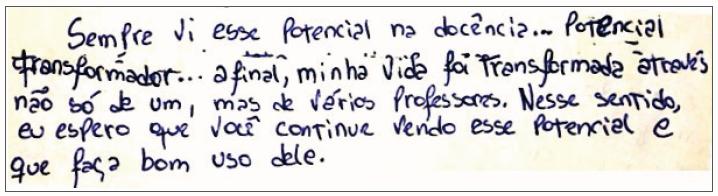 Sempre vi esse potencial na docência... Potencial
transformador... afinal, minha vida foi transformada através
não só de um, mas de vários professores. Nesse sentido,
eu espero que você continue vendo esse potencial e
que faça bom uso dele.